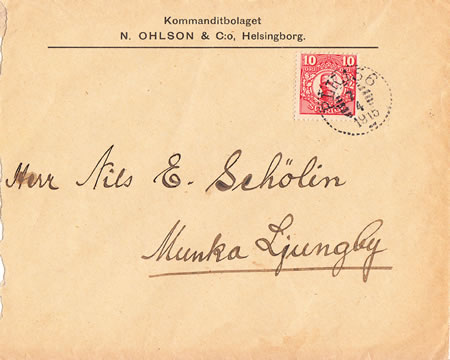 Kommanditbolaget
N. OHLSON & C:o, Helsingborg.
10 10
PLK 466
1915
Herr Nils E. Schölin
Munka Ljungby